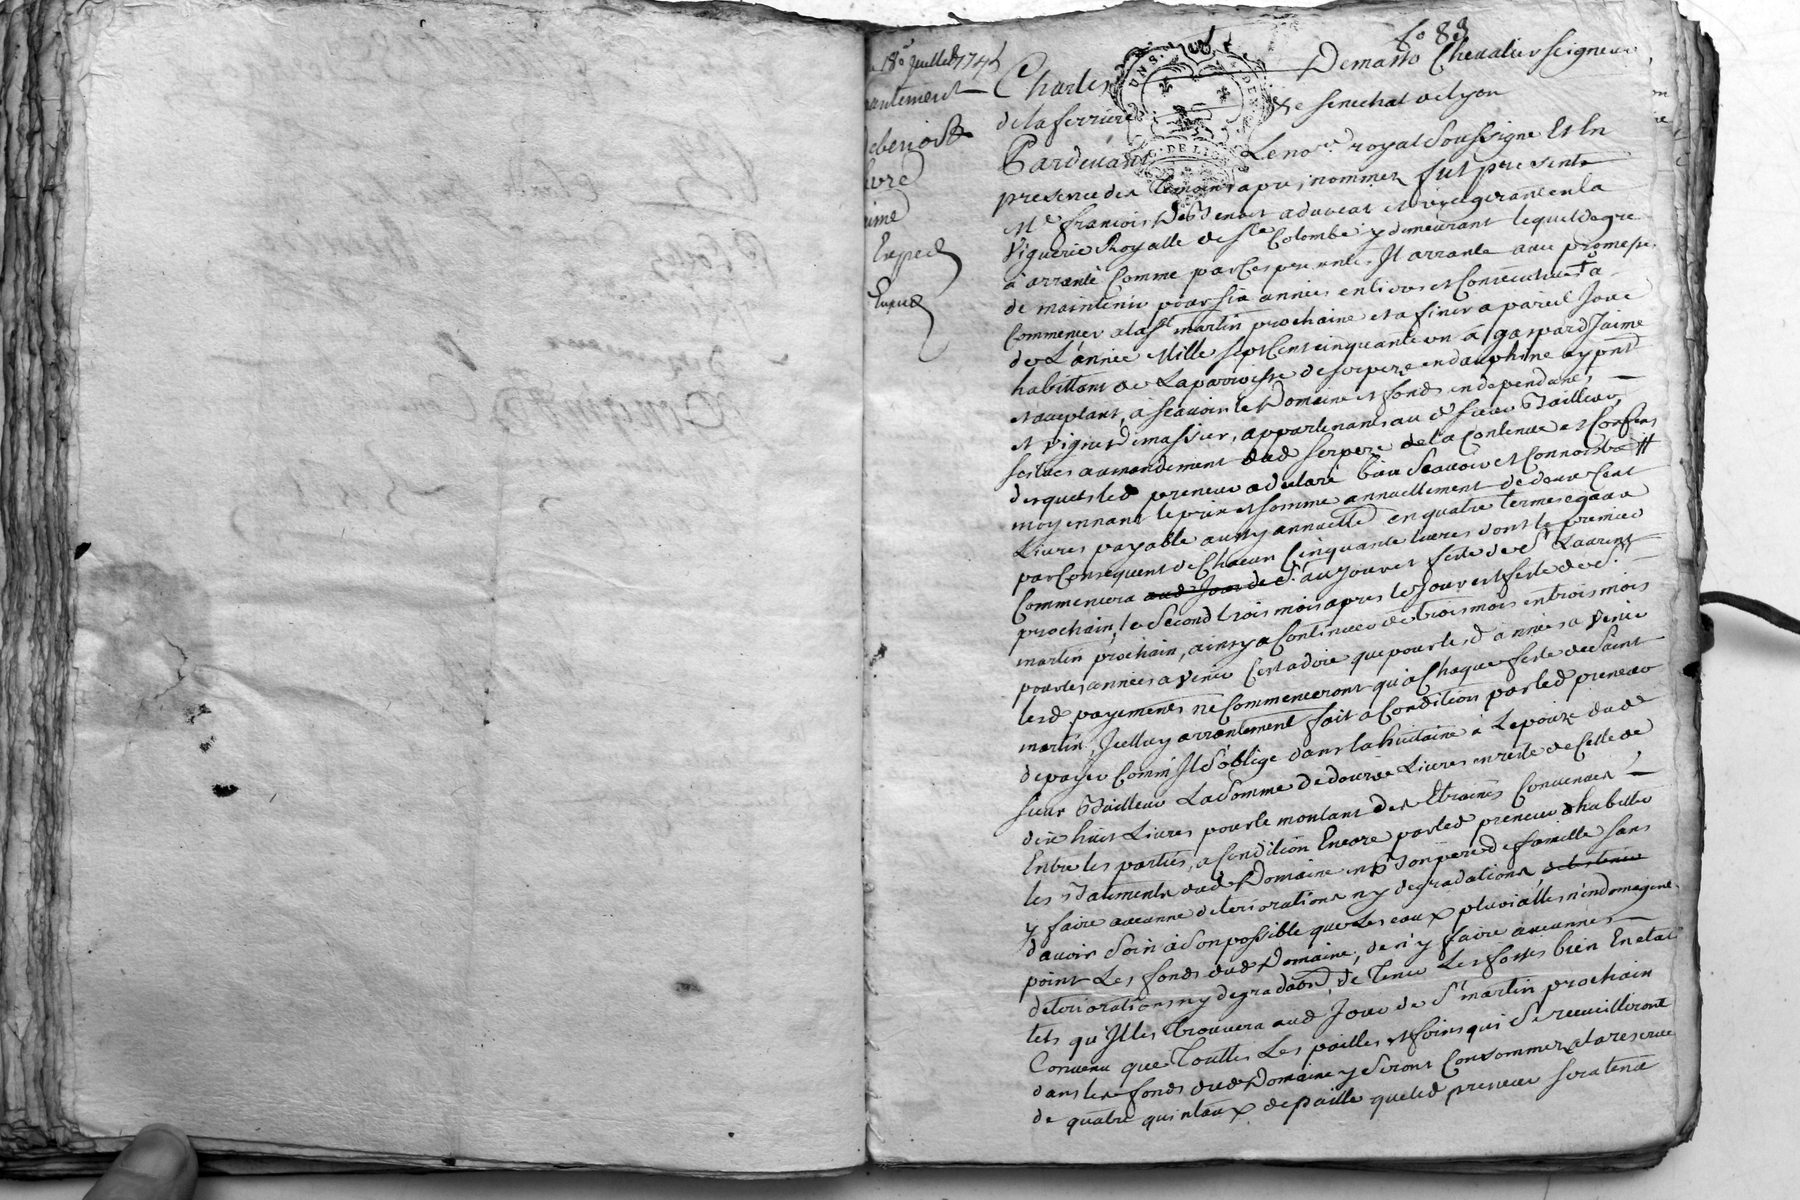 fo 83
18e Juillet 1745
Charles Demasso Chevalier seigneur
de la ferriere & senechal de lyon
Pardevant Le nore royal soussigne Et En
presence des temoins apres nommez fut present
Me francois Benoist advocat et viregerant en la
Viguerie Royalle de Ste Colombe y demeurant lequel de gre
à arrenté Comme par Ces presentes Il arrante avec promesse
de maintenir pour six années entieres et Consecutives à
Commencer a la St martin prochaine et a finir a pareil Jour
de L'année Mille sept Cent cinquante un à gaspard Jaime
habittant de La parroisse de serpeze en dauphiné cy pnt
et aceptant, à scavoir le Domaine et fonds en dependants
et vignes appartenants au d sieur Bailleur
scitués au mandement dud serpeze de la Contenue et Confins
desquels led preneur a declaré bien scavoir et Connoistre
moyennant le prix et somme annuellement de deux Cent
Livres payable aussy annuellet en quatre termes egaux
par Consequent de Chacun Cinquante livres dont le premier
Commencera aud Jour de St au jour et feste de St Laurent
prochain, le second trois mois apres le jour et feste de St
martin prochain, ainsy a Continuer de trois mois en trois mois
pour les années a venir C'est a dire que pour les d années a venir
lesd payements ne Commenceront qu'à Chaque feste de Saint
martin, Icelluy arrentement fait a Condition par led preneur
de payer Comm' Il s'oblige dans la huitaine à dud
sieur Bailleur La Somme de douze Livres en reste de Celle de
dix huit Livres pour le montant des Etraines Convenues
Entre les parties, a Condition Encore par led preneur d'habitter
les Batiments dud Domaine en bon pere de famille sans
y faire aucunne deteriorations ny degradations
d'avoir soin à son possible que les eaux pluvialles n'endomagent
point Les fonds dud Domaine, de n'y faire aucunnes
deteriorations ny degradaon, de tenir Les fossés bien En etat
tels qu'Il les trouvera aud Jour de St martin prochain
Convenu que touttes Les pailles et foins qui Se recueilliront
dans les fonds dud Domaine y seront Consommez a la reserve
de quatre quintaux de paille que led preneur sera tenu